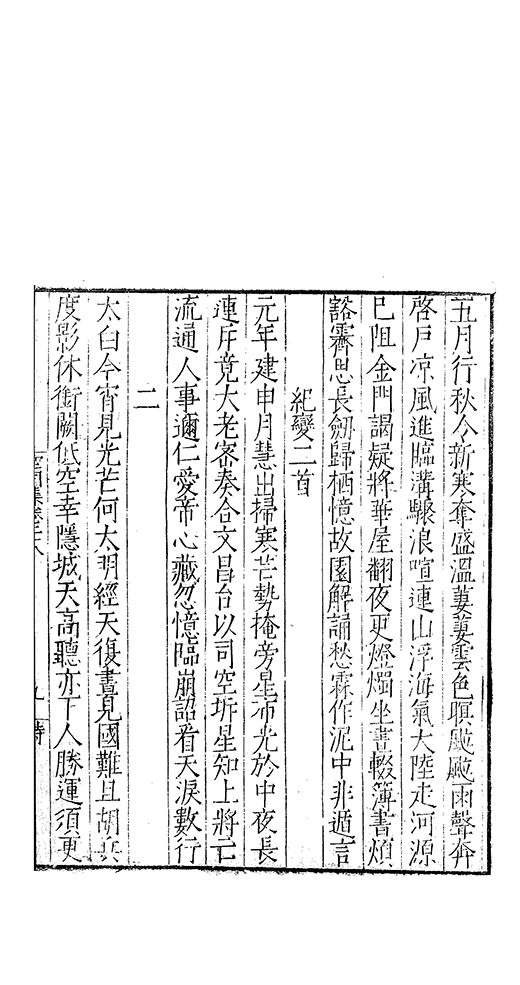 五月行秋令新寒奪盛溫萋萋雲色暝颼颼雨聲奔
啓戶凉風進臨溝驟浪喧連山浮海氣大陸走河源
巳阻金門謁疑將華屋翻夜更燈燭坐晝輟簿書煩
豁霽思長劒歸栖憶故園解誦愁霖作泥中非遁言
紀變二首
元年建申月慧出掃寒芒勢掩旁星布光於中夜長
連斥竟大老宻奏合文昌台以司空坼星知上將亡
流通人事邇仁愛帝心藏忽憶臨崩詔看天淚數行
二
太白今宵見光芒何太明經天復晝見國難且胡兵
度影休衝闕低空幸隱城天高聽亦下人勝運須更
九 詩